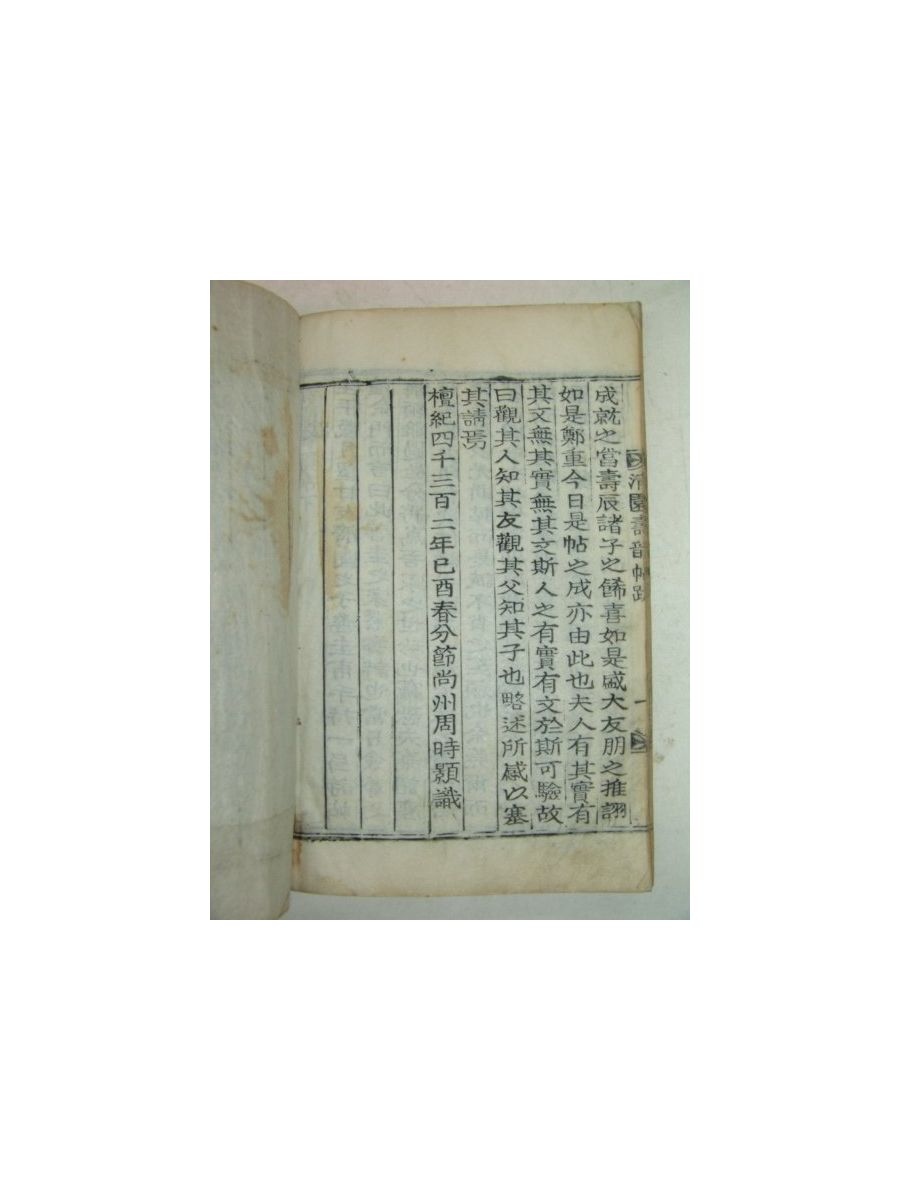 成就之當壽辰諸子之餙喜如是盛大友朋之推詡
如是鄭重今日是帖之成亦由此也夫人有其實有
其文無其實無其文斯人之有實有文於斯可驗故
曰觀其人知其友觀其父知其子也略述所感以塞
其請焉
檀紀四千三百二年己酉春分節尚州周時顥識
園壽音帖跋 一